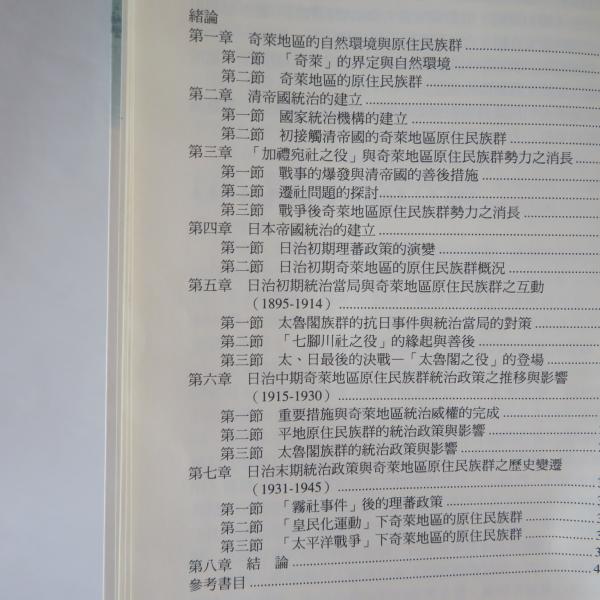 緒論
第一章　奇萊地區的自然環境與原住民族群
第一節　「奇萊」的界定與自然環境
第二節　奇萊地區的原住民族群
第二章　清帝國統治的建立
第一節　國家統治機構的建立
第二節　初接觸清帝國的奇萊地區原住民族群
第三章　「加禮宛社之役」與奇萊地區原住民族群勢力之消長
第一節　戰事的爆發與清帝國的善後措施
第二節　遷社問題的探討
第三節　戰爭後奇萊地區原住民族群勢力之消長
第四章　日本帝國統治的建立
第一節　日治初期理蕃政策的演變
第二節　日治初期奇萊地區的原住民族群概況
第五章　日治初期統治當局與奇萊地區原住民族群之互動
（1895-1914）
第一節　太魯閣族群的抗日事件與統治當局的對策
第二節　「七腳川社之役」的緣起與善後
第三節　太、日最後的決戰—「太魯閣之役」的登場
第六章　日治中期奇萊地區原住民族群統治政策之推移與影響
（1915-1930）
第一節　重要措施與奇萊地區統治威權的完成
第二節　平地原住民族群的統治政策與影響
第三節　太魯閣族群的統治政策與影響
第七章　日治末期統治政策與奇萊地區原住民族群之歷史變遷
（1931-1945）
第一節　「霧社事件」後的理蕃政策
第二節　「皇民化運動」下奇萊地區的原住民族群
第三節　「太平洋戰爭」下奇萊地區的原住民族群
第八章　結　論
參考書目